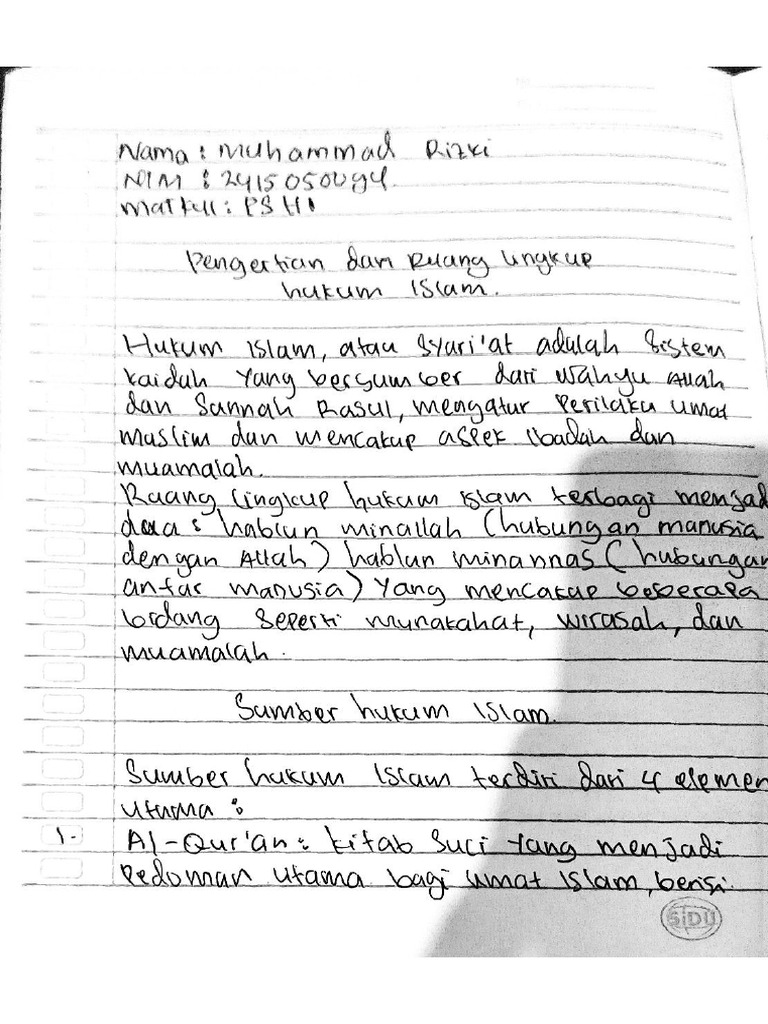 Nama : Muhammad Rizki
NIM :
Matkul : PSHI
Pengertian dan Ruang lingkup
hukum Islam.
Hukum islam, atau syari'at adalah sistem
kaidah yang bersumber dari wahyu Allah
dan Sunnah Rasul, mengatur perilaku umat
muslim dan mencakup aspek ibadah dan
muamalah.
Ruang lingkup hukum islam terbagi menjadi
dua : hablun minallah (hubungan manusia
dengan Allah) hablun minannas (hubungan
antar manusia) yang mencakup beberapa
bidang seperti munakahat, wirasah, dan
muamalah.
Sumber hukum Islam.
Sumber hukum Islam terdiri dari 4 elemen
utama :
1. Al-Qur'an : kitab suci yang menjadi
Pedoman utama bagi umat Islam, berisi
SiDU